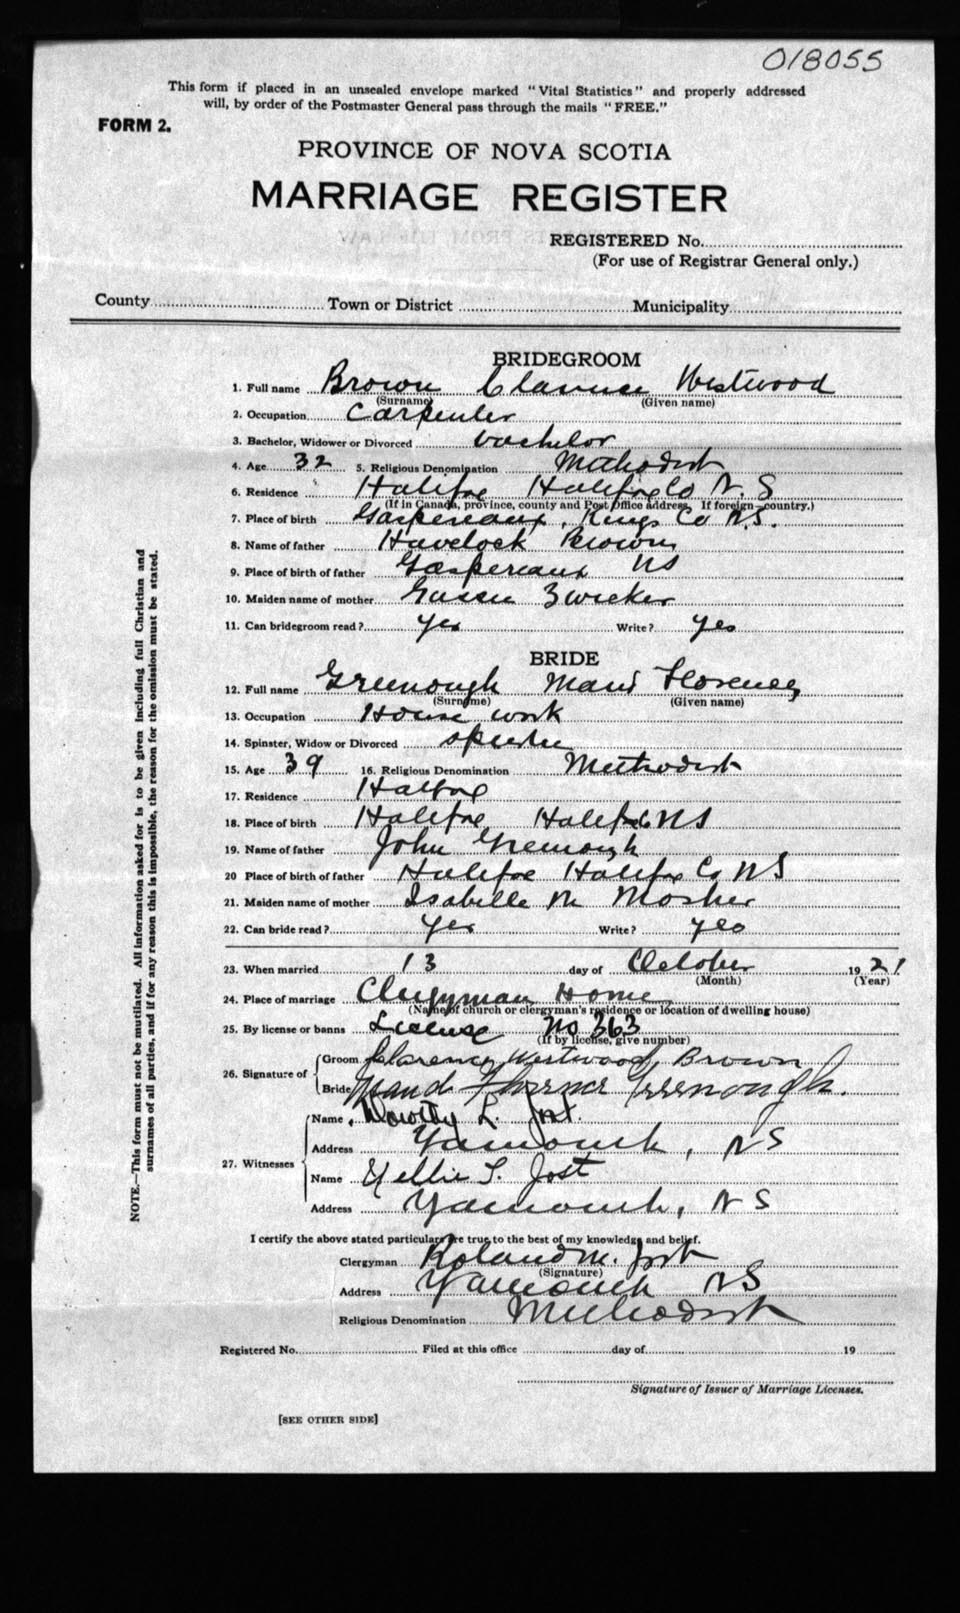 018055
This form if placed in an unsealed envelope marked "Vital Statistics" and properly addressed
will, by order of the Postmaster General pass through the mails "FREE."
FORM 2.
PROVINCE OF NOVA SCOTIA
MARRIAGE REGISTER
REGISTERED No.
(For use of Registrar General only.)
County Town or District Municipality
BRIDEGROOM
1. Full name Brown Clarence Westwood
(Surname) (Given name)
2. Occupation Carpenter
3. Bachelor, Widower or Divorced bachelor
4. Age 32 5. Religious Denomination Methodist
6. Residence Halifax Halifax Co N.S
(If in Canada, province, county and Post Office address. If foreign—country.)
7. Place of birth Gaspereaux, Kings Co N.S.
8. Name of father Havelock Brown
9. Place of birth of father Gaspereaux NS
10. Maiden name of mother Gussie Zwicker
11. Can bridegroom read? Yes Write? yes
BRIDE
12. Full name Greenough Maud Florence
(Surname) (Given name)
13. Occupation House work
14. Spinster, Widow or Divorced spinster
15. Age 39 16. Religious Denomination Methodist
17. Residence Halifax
18. Place of birth Halifax, Halifax Co NS
19. Name of father John Greenough
20 Place of birth of father Halifax Halifax Co NS
21. Maiden name of mother Isabelle M Mosher
22. Can bride read? Yes Write? yes
23. When married 13 day of October 1921
(Month) (Year)
24. Place of marriage Clergyman Home
(Name of church or clergyman's residence or location of dwelling house)
25. By license or banns License No 363
(If by license, give number)
26. Signature of Groom Clarence Westwood Brown
Bride Maud Florence Greenough.
27. Witnesses Name Dorothy L. Jost
Address Yarmouth, NS
Name Nellie S. Jost
Address Yarmouth, NS
I certify the above stated particulars are true to the best of my knowledge and belief.
Clergyman Roland M. Jost
(Signature)
Address Yarmouth NS
Religious Denomination Methodist
Registered No. Filed at this office day of 19
Signature of Issuer of Marriage Licenses.
[SEE OTHER SIDE]
NOTE.—This form must not be mutilated. All information asked for is to be given including full Christian and
surnames of all parties, and if for any reason this is impossible, the reason for the omission must be stated.